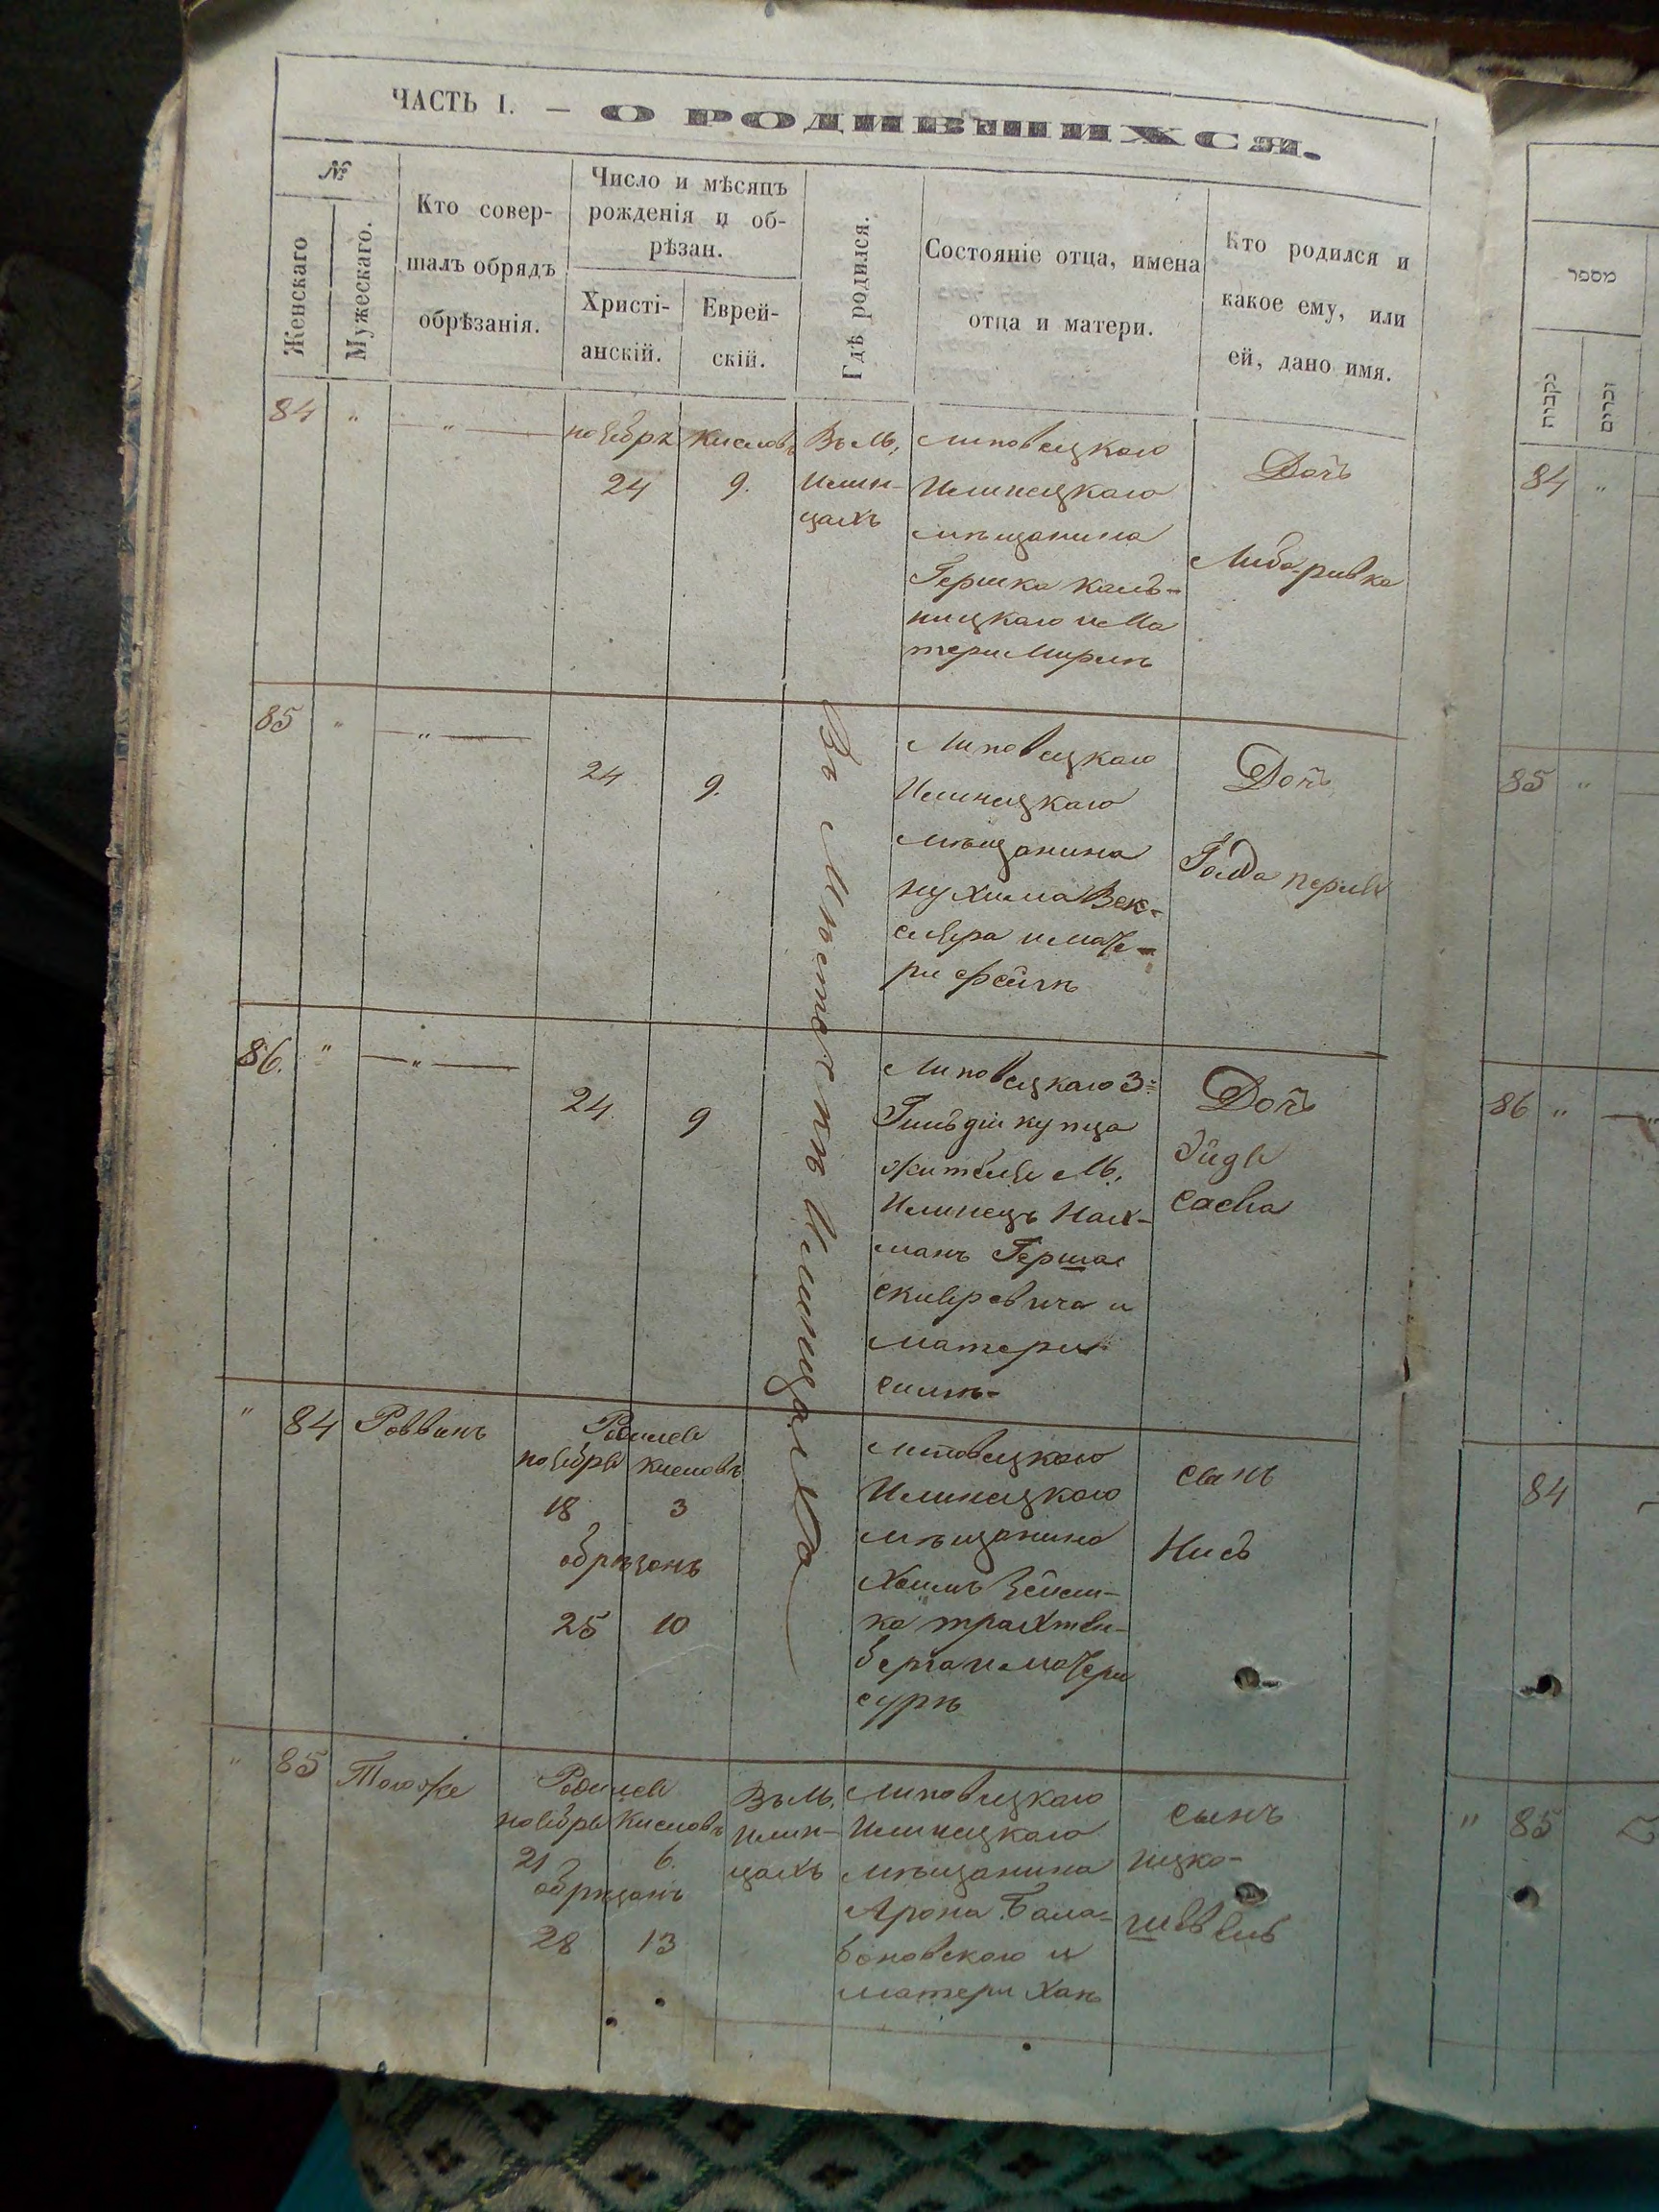 ЧАСТЬ I. — О РОДИВШИХСЯ.
№
Женскаго
Мужескаго.
Кто совер-
шалъ обрядъ
обрѣзанія.
Число и мѣсяцъ
рожденія и об-
рѣзан.
Христі-
анскій.
Еврей-
скій.
Гдѣ родился.
Состояніе отца, имена
отца и матери.
Кто родился и
какое ему, или
ей, дано имя.
84 " — " —
ноября
24
Кислевъ
9.
Въ М.
Илин-
цахъ
Липовецкаго
Илинецкаго
мѣщанина
Гершка Каль-
ницкаго и Ма
тери Миринѣ
Дочь
Либа-ривка
85 " — " —
24
9.
Въ Мѣстечкѣ Илинцахъ
Липовецкаго
Илинецкаго
мѣщанина
Нухима Век-
слера и мате-
ри Фейгѣ
Дочь
Голда перля
86. " — " —
24.
9
Липовецкаго 3й
Гильдіи купца
жителя М.
Илинецъ Нах-
манъ Герша
Скляревича и
матери
Дочь
Эйдя
Сосьа
" 84
Родился
ноября Кислевъ
18 3
обрѣзанъ
25 10
Липовецкаго
Илинецкаго
мѣщанина
Хаимъ Зейлик-
ка трахтен-
берга и матери
сурѣ
сынъ
" 85 Тогоже
Родился
ноября Кислевъ
21 6.
обрѣзанъ
28 13
Въ М.
Илин-
цахъ
Липовецкаго
Илинецкаго
мѣщанина
Арона Бала-
бановскаго и
матери Ханѣ
сынъ
ицко-
מספר
נקבות
זכרים
84 "
85 "
86 "
84
" 85